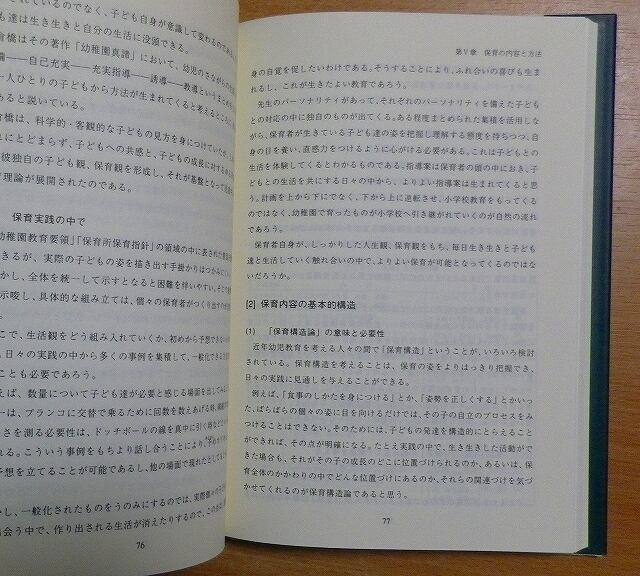 れているのでなく、子ども自身が意識して変わるのであ
も達は生き生きと自分の生活に没頭できる。
倉橋はその著作「幼稚園真諦」において、幼児のさながらの
――自己充実――充実指導――誘導――教導という
一人ひとりの子どもから方法が生まれてくると考えるところに
あると説いている。
橋は、科学的・客観的な子どもの見方を身につけていたが、
れにとどまらず、子どもへの共感と、子どもの成長に対する
彼独自の子ども観、保育観を形成し、それが基盤となって
理論が展開されたのである。
保育実践の中で
幼稚園教育要領」「保育所保育指針」の領域の中に表された
きるが、実際の子どもの姿を描き出す手掛かりはつかみにくい
かし、全体を統一して示すとなると困難を伴いやすい。
示唆し、具体的な組み立ては、個々の保育者がつくり出す
こで、生活観をどう組み入れていくか、初めから予想できない
、日々の実践の中から多くの事例を集積して、一般化できる
ことも必要であろう。
えば、数量について子ども達が必要と感じる場面を出してみ
ーは、ブランコに交替で乗るために回数を数えあげる時、
さを測る必要性は、ドッチボールの線を真中に引く時など
れる。こういう事例をもちよる話し合うことにより、
予想を立てることが可能であるし、他の場面で現れたとして
かし、一般化されたものをうのみにするのでは、実際
出会う中で、作り出される生活が消えたりするので、この
76
第Ⅴ章 保育の内容と方法
身の自覚を促したいわけである。そうすることにより、ふれ合いの喜びも生ま
れるし、これが生きたよい教育であろう。
先生のパーソナリティがあって、それぞれのパーソナリティを備えた子ども
との対応の中に独自のものが出てくる。ある程度まとめられた集積を活用しな
がら、保育者が生きている子ども達の姿を把握し理解する態度を持ちつつ、自
身の目を養い、直感力をつけるように心がける必要がある。これは子どもとの
生活を体験してくるとわかるものである。指導案は保育者の頭の中におき、子
どもとの生活を共にする日々の中から、よりよい指導案は生まれてくると思
う。計画を上から下にでなく、下から上に逆転させ、小学校教育をもってくる
のではなく、幼稚園で育ったものが小学校へ引き継がれていくのが自然の流れ
であろう。
保育者自身が、しっかりした人生観、保育観をもち、毎日生き生きと子ども
達と生活していく触れ合いの中で、よりよい保育が可能となってくるのではな
いだろうか。
[2] 保育内容の基本的構造
(1) 「保育構造論」の意味と必要性
近年幼児教育を考える人々の間で「保育構造」ということが、いろいろ検討
されている。保育構造を考えることは、保育の姿をよりはっきり把握でき、
日々の実践に見通しを与えることができる。
例えば、「食事のしかたを身につける」とか、「姿勢を正しくする」とかいっ
た、ばらばらの個々の姿に目を向けるだけでは、その子の自立のプロセスをみ
つけることはできない。そのためには、子どもの発達を構造的にとらえること
ができれば、その点が明確になる。たとえ実践の中で、生き生きした活動がで
きた場合も、それがその子の成長のどこに位置づけられるのか、あるいは、保
育全体のかかわりの中でどんな位置づけにあるのか、それらの関連づけを気づ
かせてくれるのが保育構造論であると思う。
77